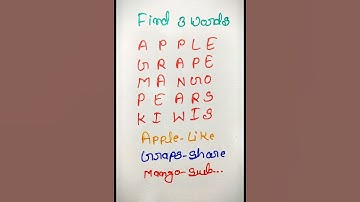 Find 3 words
A P P L E
G R A P E
M A N G O
P E A R S
K I W I S
Apple-Like
Graps-share
Mango-Sub...